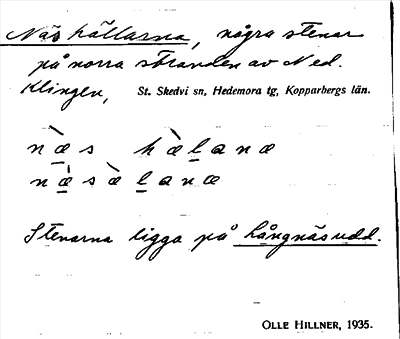 Näshällarna, några stenar
på norra stranden av Ned.
Klingen, St. Skedvi sn, Hedemora tg, Kopparbergs län.
næ̀s hæ̀lanæ
næ̀sæ̀lanæ
Stenarna ligga på Långnäsudd.
OLLE HILLNER, 1935.